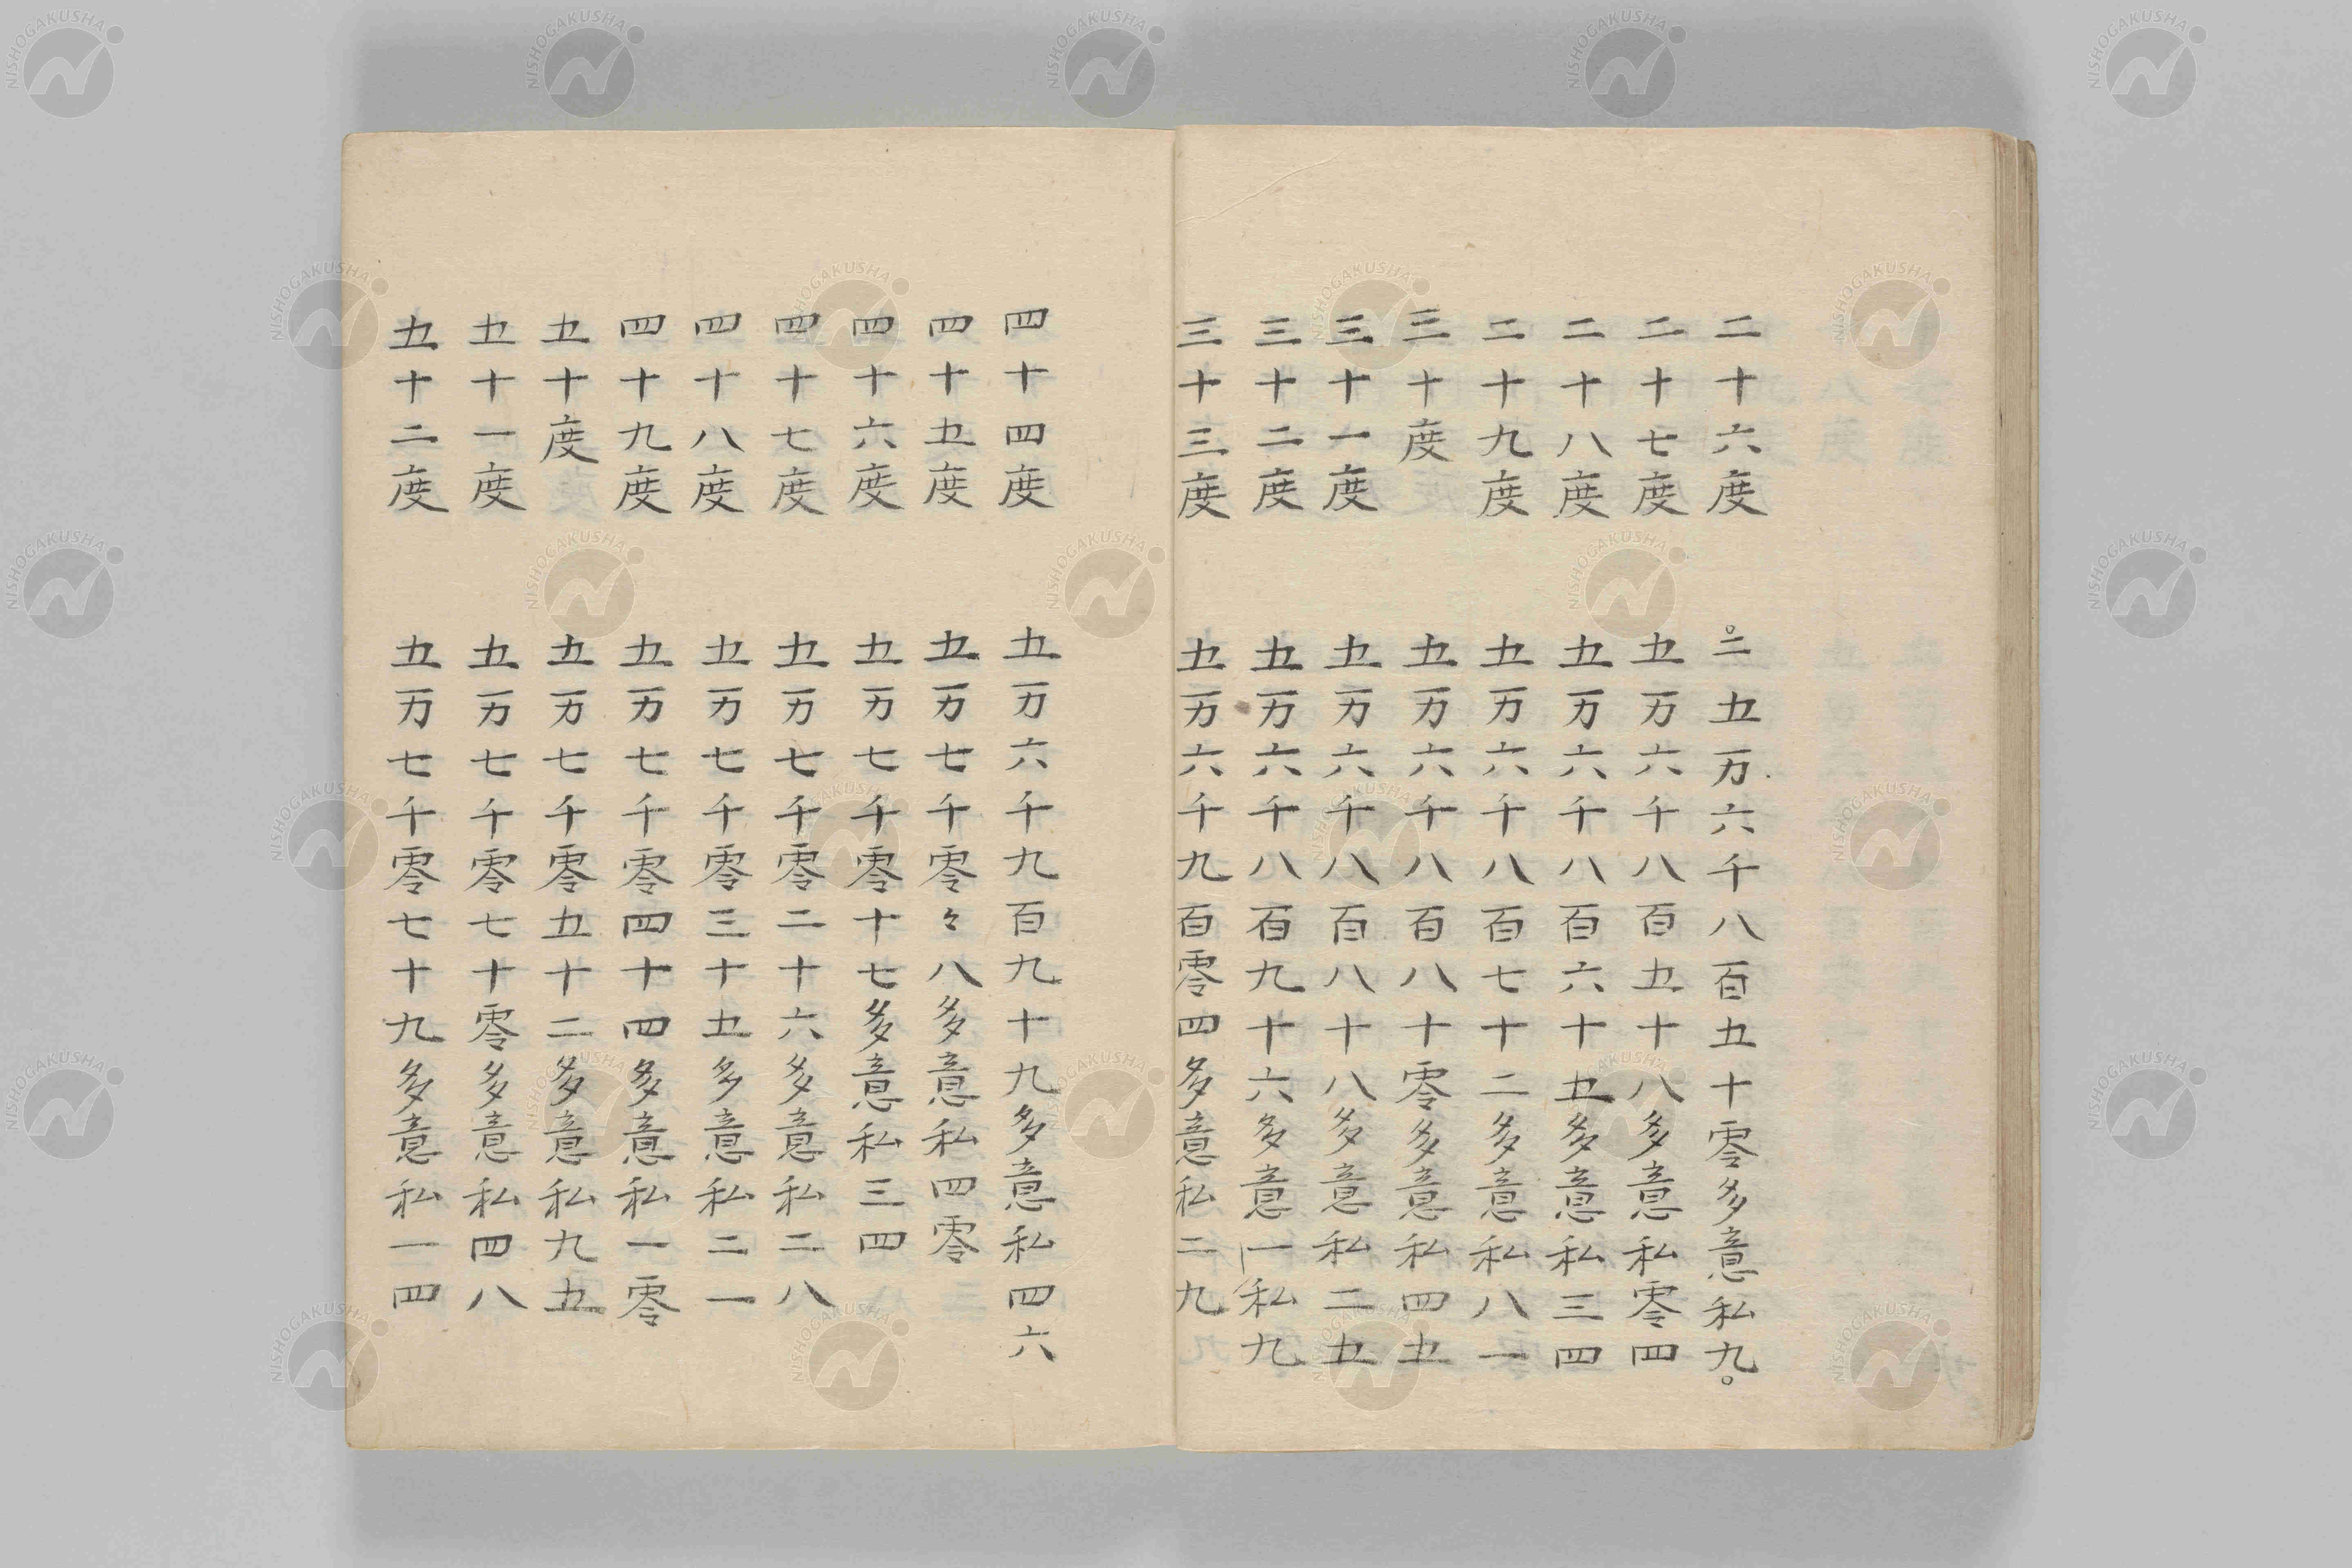 二十六度　。二五万六千八百五十零多意私九。
二十七度　五万六千八百五十八多意私零四
二十八度　五万六千八百六十五多意私三四
二十九度　五万六千八百七十二多意私八一
三十度　五万六千八百八十零多意私四五
三十一度　五万六千八百八十八多意私二五
三十二度　五万六千八百九十六多意一私九
三十三度　五万六千九百零四多意私二九
四十四度　五万六千九百九十九多意私四六
四十五度　五万七千零々八多意私四零
四十六度　五万七千零十七多意私三四
四十七度　五万七千零二十六多意私二八
四十八度　五万七千零三十五多意私二一
四十九度　五万七千零四十四多意私一零
五十度　五万七千零五十二多意私九五
五十一度　五万七千零七十零多意私四八
五十二度　五万七千零七十九多意私一四
NISHOGAKUSHA